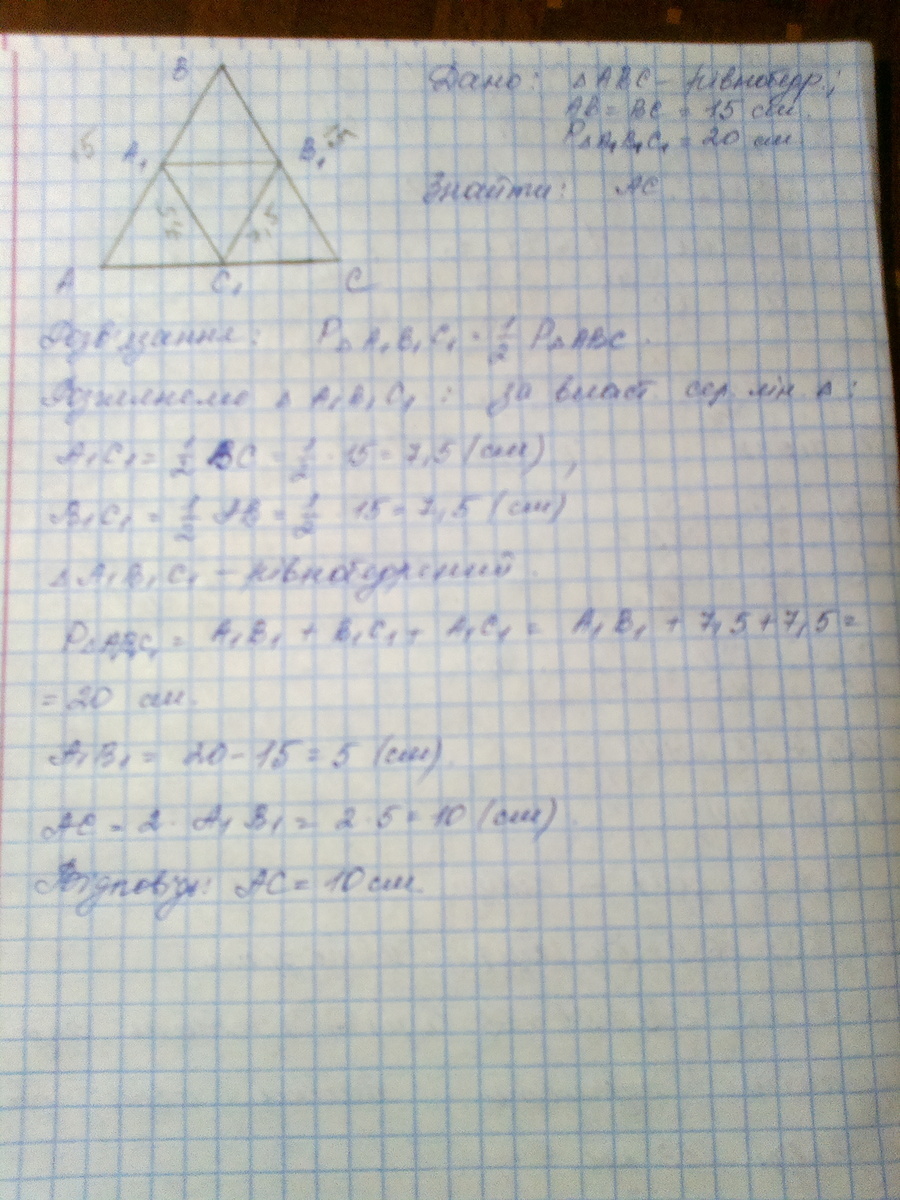 B
A₁
B₁
15
15
7,5
7,5
A
C₁
C
Дано: △ABC – рівнобедр.;
AB = BC = 15 см.
P△A₁B₁C₁ = 20 см.
Знайти: AC.
Розв'язання: P△A₁B₁C₁ = 1/2 P△ABC.
Розглянемо △A₁B₁C₁: за власт сер. лін △:
A₁C₁ = 1/2 BC = 1/2 · 15 = 7,5 (см),
B₁C₁ = 1/2 AB = 1/2 · 15 = 7,5 (см)
△A₁B₁C₁ – рівнобедрений.
P△A₁B₁C₁ = A₁B₁ + B₁C₁ + A₁C₁ = A₁B₁ + 7,5 + 7,5 =
= 20 см.
A₁B₁ = 20 – 15 = 5 (см).
AC = 2 · A₁B₁ = 2 · 5 = 10 (см).
Відповідь: AC = 10 см.